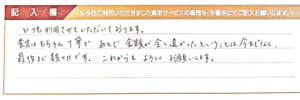 記入欄
※今回ご利用いただきました買取サービスの感想を、手書きにてご記入お願いします。
いつも利用させていただいております。
査定はもちろん丁寧で あとで 金額が全く違かったということは今までなく、
最後まで親切です。これからも よろしく お願いします。